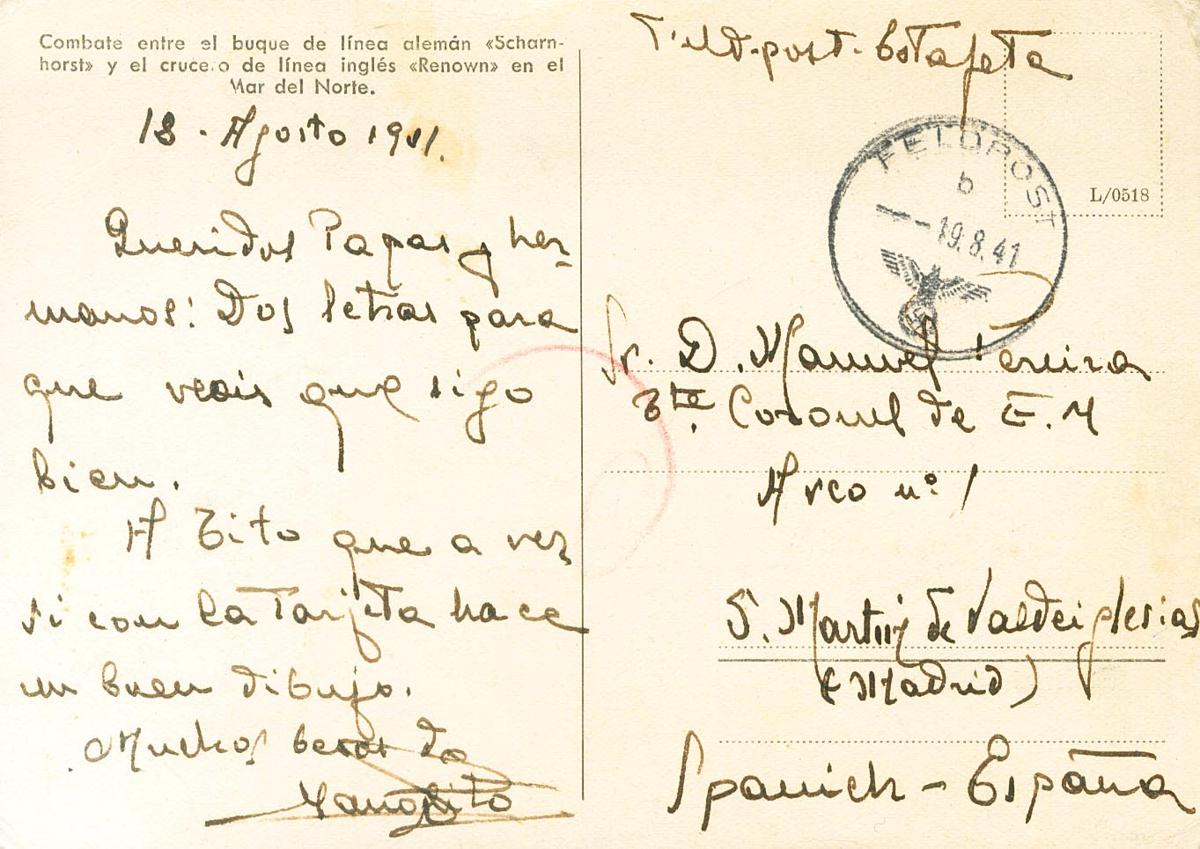 Combate entre el buque de línea alemán «Scharn-
horst» y el crucero de línea inglés «Renown» en el
Mar del Norte.
18 - Agosto 1941.
Queridos Papas y her-
manos: Dos letras para
que veais que sigo
bien.
A Tito que a ver
si con la tarjeta hace
un buen dibujo.
Muchos besos de
Manolito
Feld-post-Estafeta
FELDPOST
b
19.8.41
L/0518
Sr. D. Manuel Pereira
Coronel de E.M
Arco nº 1
S. Martin de Valdeiglesias
(Madrid)
Spanich - España